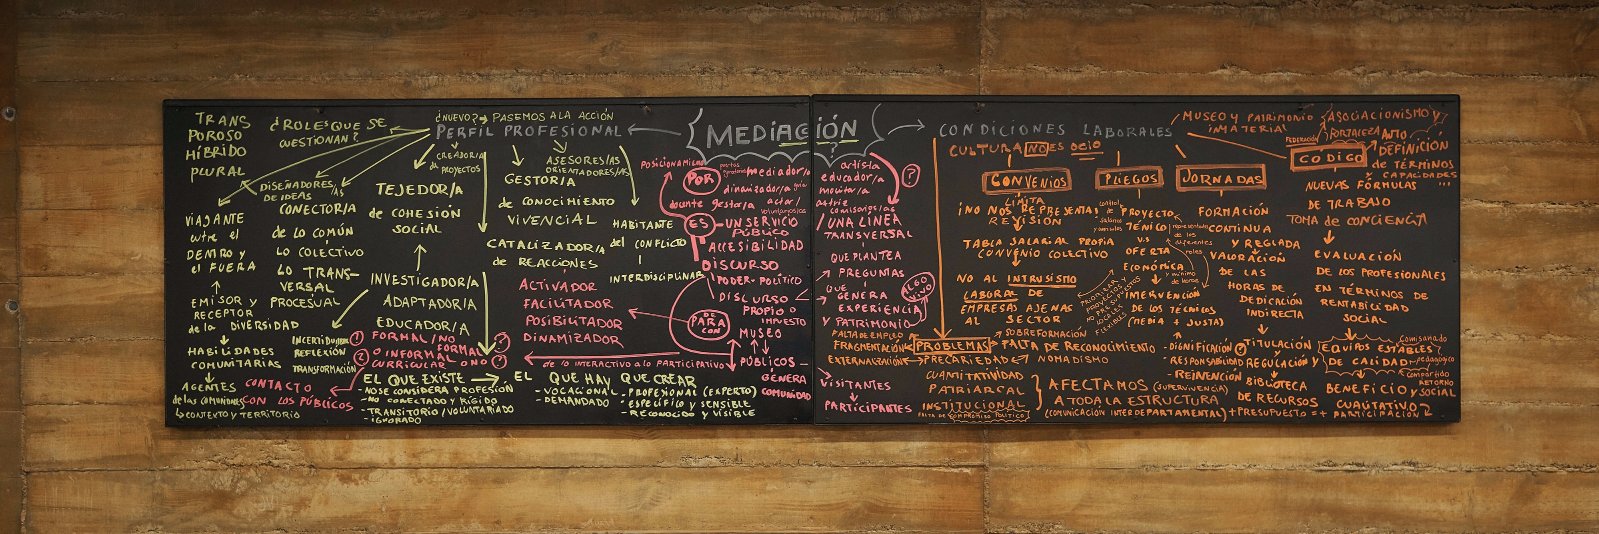 TRANS
POROSO
HÍBRIDO
PLURAL
¿ROLES QUE SE
CUESTIONAN?
¿NUEVO? → PASEMOS A LA ACCIÓN
PERFIL PROFESIONAL
DISEÑADORES/AS
DE IDEAS
CREADOR/A
de PROYECTOS
ASESORES/AS
ORIENTADORES/AS
VIAJANTE
entre el
DENTRO y
el FUERA
CONECTOR/A
de lo COMÚN
lo COLECTIVO
lo TRANS-
VERSAL
PROCESUAL
TEJEDOR/A
de COHESIÓN
SOCIAL
GESTOR/A
de CONOCIMIENTO
VIVENCIAL
CATALIZADOR/A
de REACCIONES
HABITANTE
del CONFLICTO
INTERDISCIPLINAR
EMISOR y
RECEPTOR
de la DIVERSIDAD
HABILIDADES
COMUNITARIAS
AGENTES
de las COMUNIDADES
↳ CONTEXTO y TERRITORIO
INVESTIGADOR/A
ADAPTADOR/A
EDUCADOR/A
INCERTIDUMBRE
REFLEXIÓN
TRANSFORMACIÓN
ACTIVADOR
FACILITADOR
POSIBILITADOR
DINAMIZADOR
① FORMAL/NO
FORMAL
② O INFORMAL
CURRICULAR O NO
CONTACTO
CON LOS PÚBLICOS
EL QUE EXISTE → EL QUE HAY QUE CREAR
- NO SE CONSIDERA PROFESIÓN
- NO CONECTADO y RÍGIDO
- TRANSITORIO/VOLUNTARIADO
- IGNORADO
- VOCACIONAL
- DEMANDADO
- PROFESIONAL (EXPERTO)
- ESPECÍFICO y SENSIBLE
- RECONOCIDO y VISIBLE
MEDIACIÓN
?
POSICIONAMIENTO
POR
mediador/a
dinamizador/a guía
gestor/a actor/
voluntarios/as
artista
educador/a
monitor/a
actriz
comisarios/as
?
ES
- UN SERVICIO
PÚBLICO
ACCESIBILIDAD
DISCURSO
PODER-POLÍTICO
DISCURSO
PROPIO O
IMPUESTO
DE
PARA
CON
MUSEO
PÚBLICOS
GENERA
COMUNIDAD
de lo INTERACTIVO a lo PARTICIPATIVO
/UNA LÍNEA
TRANSVERSAL
QUE PLANTEA
PREGUNTAS
QUE
GENERA
EXPERIENCIA
Y PATRIMONIO
ALGO
VIVO
VISITANTES
PARTICIPANTES
CONDICIONES LABORALES
CULTURA NO ES OCIO
CONVENIOS
PLIEGOS
JORNADAS
CODIGO
MUSEO y PATRIMONIO
INMATERIAL
ASOCIACIONISMO Y
FORTALEZA
FEDERACIÓN
AUTO
DEFINICIÓN
de TÉRMINOS
y CAPACIDADES
...
LIMITA
¡NO NOS REPRESENTA!
REVISIÓN
TABLA SALARIAL PROPIA
CONVENIO COLECTIVO
NO AL INTRUSISMO
LABORAL DE
EMPRESAS AJENAS
AL SECTOR
PROYECTO
TÉNICO
VS
OFERTA
ECONÓMICA
INTERVENCIÓN
DE LOS TÉCNICOS
(MEDIA + JUSTA)
FORMACIÓN
CONTINUA
Y REGLADA
VALORACIÓN
DE LAS
HORAS DE
DEDICACIÓN
INDIRECTA
TITULACIÓN
REGULACIÓN y
BIBLIOTECA
DE RECURSOS
NUEVAS FÓRMULAS
DE TRABAJO
TOMA de CONCIENCIA
EVALUACIÓN
DE LOS PROFESIONALES
EN TÉRMINOS DE
RENTABILIDAD
SOCIAL
EQUIPOS ESTABLES
DE CALIDAD
Comisariado
pedagógico
compartido
BENEFICIO y
RETORNO
SOCIAL
CUALITATIVO
PARTICIPACIÓN
FALTA DE EMPLEO
FRAGMENTACIÓN
EXTERNALIZACIÓN
PROBLEMAS
SOBREFORMACIÓN
FALTA DE RECONOCIMIENTO
PRECARIEDAD
NOMADISMO
- DIGNIFICACIÓN
- RESPONSABILIDAD
- REINVENCIÓN
CUANTITATIVIDAD
PATRIARCAL
INSTITUCIONAL
FALTA DE COMPROMISO POLÍTICO
AFECTAMOS (SUPERVIVENCIA)
A TODA LA ESTRUCTURA
(COMUNICACIÓN INTERDEPARTAMENTAL) + PRESUPUESTO = +